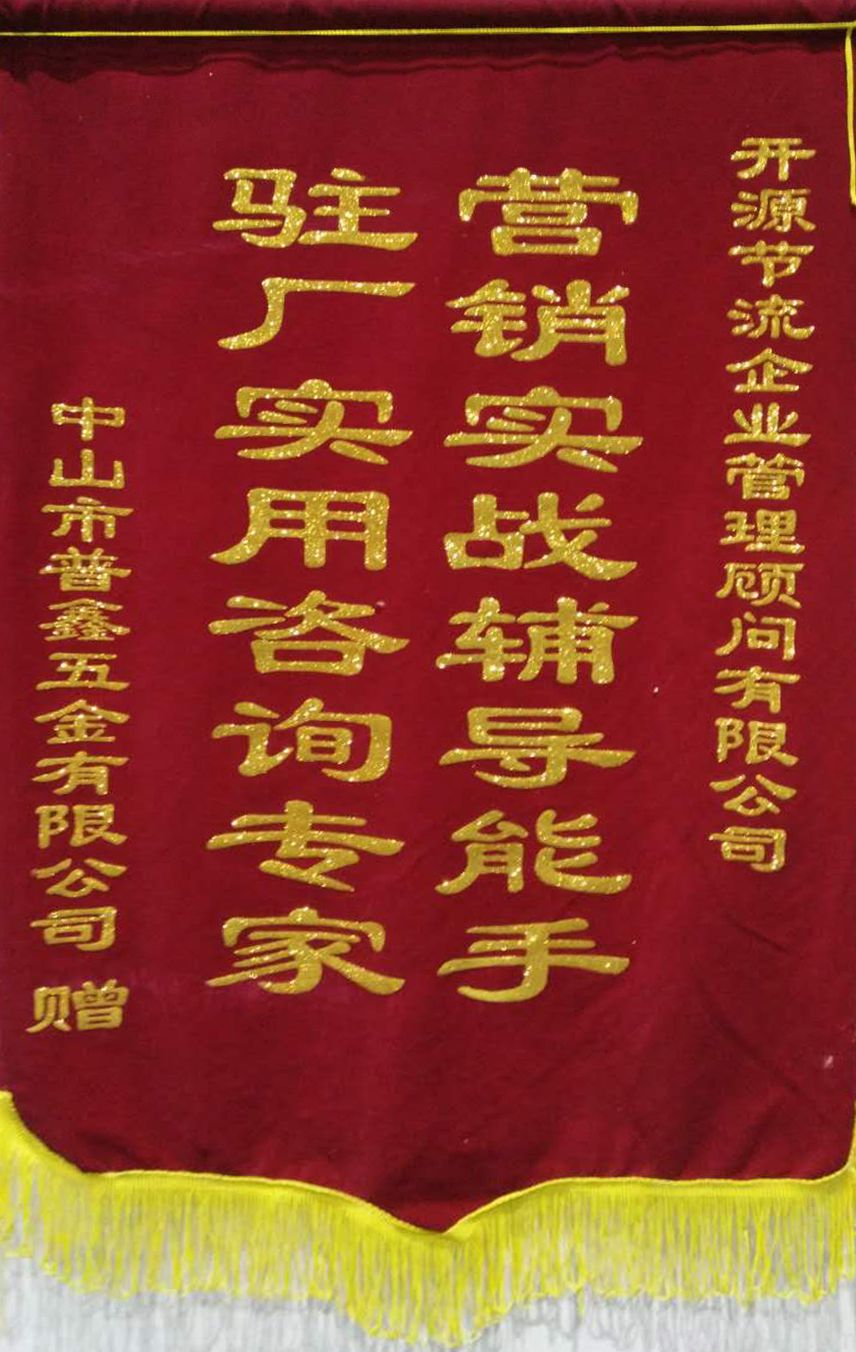 开源节流企业管理顾问有限公司
营销实战辅导能手
驻厂实用咨询专家
中山市普鑫五金有限公司 赠